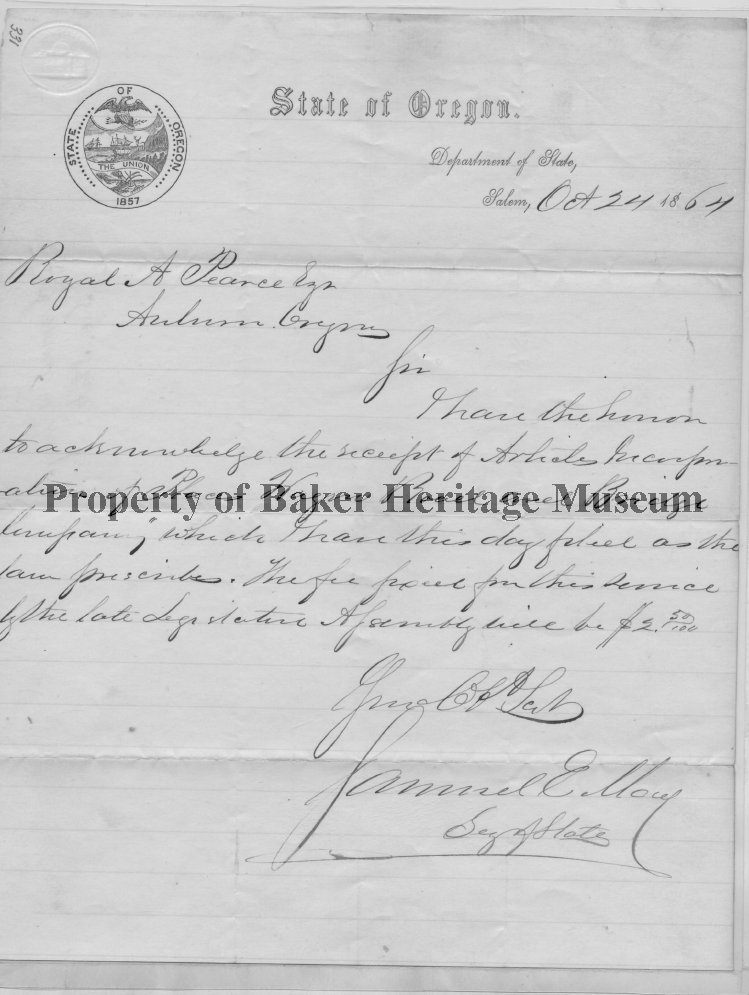 331
STATE OF OREGON
THE UNION
1857
State of Oregon.
Department of State,
Salem, Oct 24 1864
Royal A Pearce Esqr
Auburn Oregon
Sir
I have the honor
to acknowledge the receipt of Articles Incorpor
ation of Wagon Road and Bridge
Property of Baker Heritage Museum
Company," which I have this day filed as the
law prescribes. The fee fixed for this service
by the late Legislative Assembly will be $2. 50/100
Your Obt Sevt
Samuel E. May
Secy of State